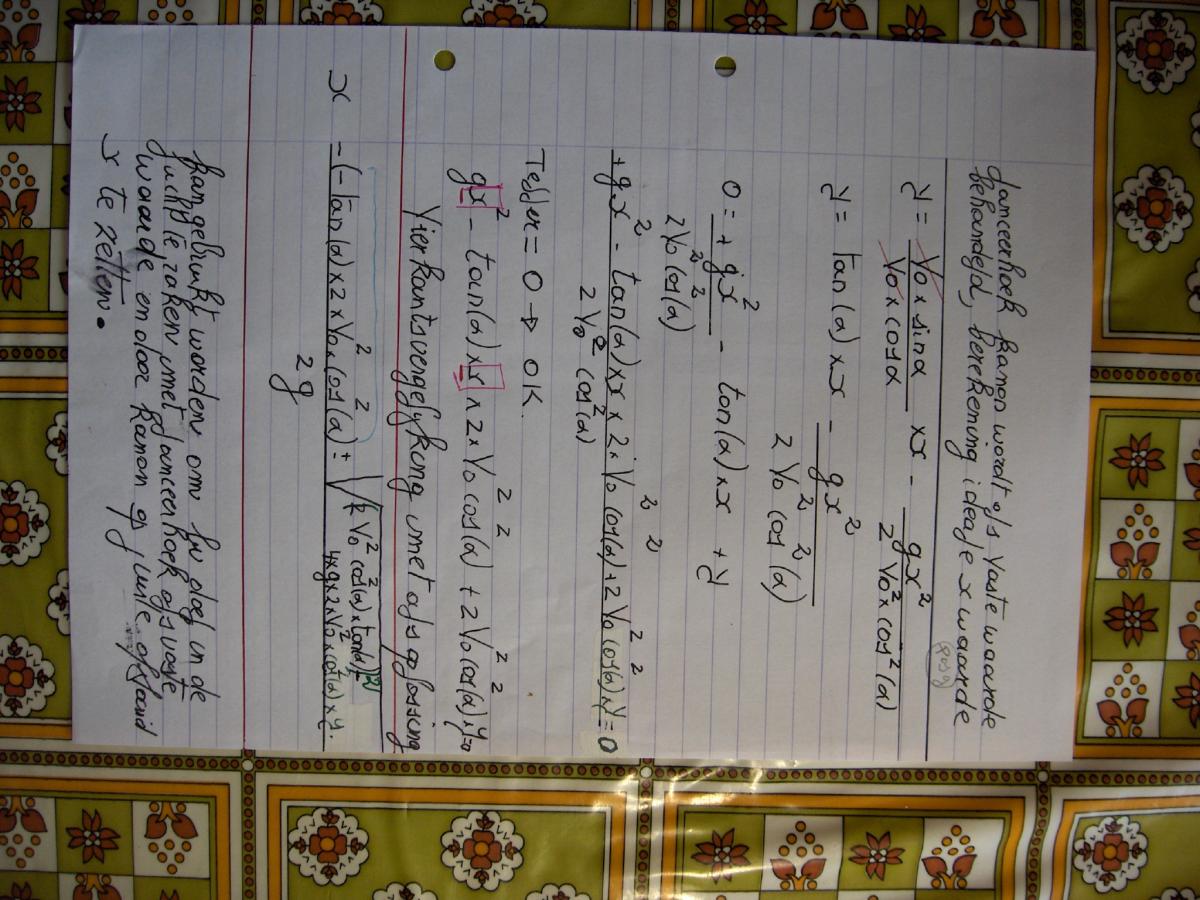 danceerhoek kanon wordt als vaste waarde
behandeld, berekening ideale x waarde
y = V₀ × sinα / V₀ × cosα × x - gx² / 2 V₀² × cos²(α)
y = tan(α) × x - gx² / 2 V₀² cos²(α)
0 = + gx² / 2 V₀² cos²(α) - tan(α) × x + y
+ gx² - tan(α) × x × 2 × V₀² cos²(α) + 2 V₀² cos²(α) × y / 2 V₀² cos²(α) = 0
Teller = 0 → OK.
gx² - tan(α) × x × 2 × V₀² cos²(α) + 2 V₀² cos²(α) × y = 0
Vierkantsvergelijking met als oplossing
x -(-tan(α) × 2 × V₀² × cos²(α)) ± √(2 V₀² cos²(α) × tan(α))² -
4 × g × 2 × V₀² × cos²(α) × y.
2g
kan gebruikt worden om kuil in de
juiste zaken met lanceerhoek als vaste
waarde en daar kanon op juiste afstand
x te zetten.